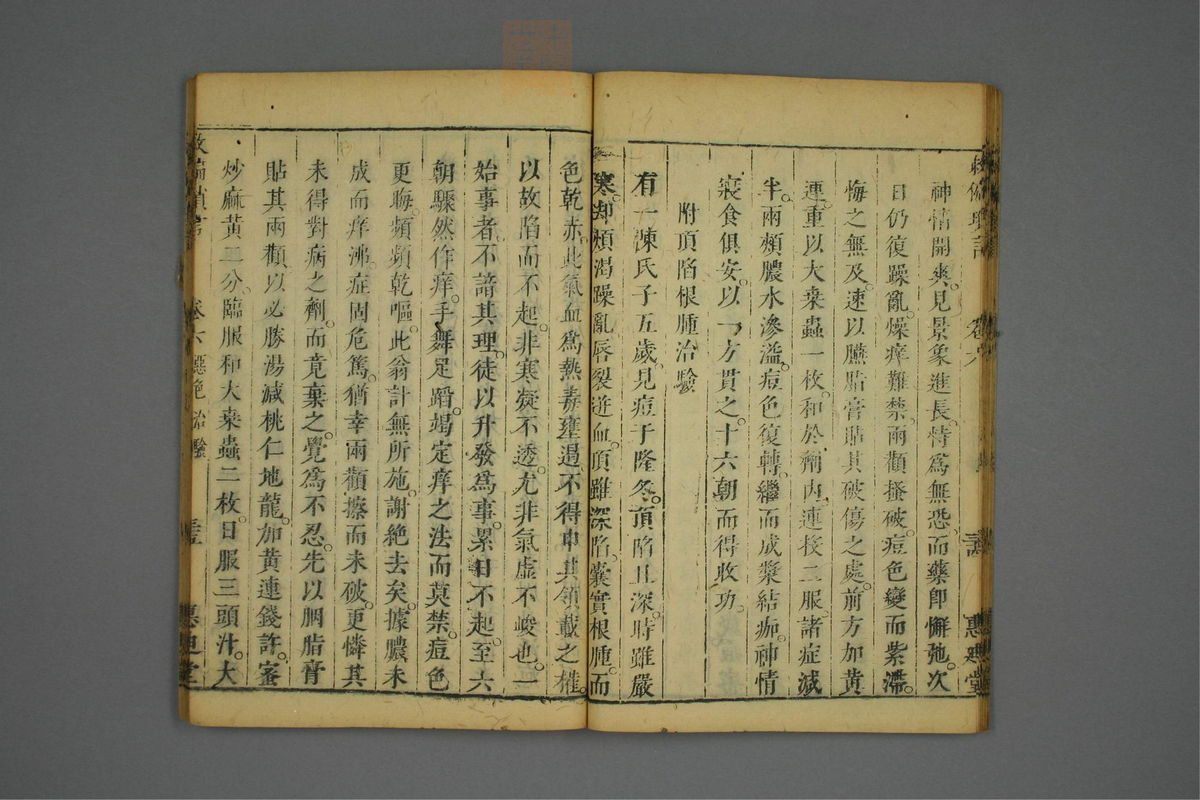 神情開爽。見景象進長。恃爲無恐。而藥卽懈弛。次
日仍復躁亂。燥痒難禁。兩顴搔破。痘色變而紫滯。
悔之無及。速以臙脂膏貼其破傷之處。前方加黄
連。重以大桒蟲一枚。和於劑内。連投二服。諸症減
半。兩頰膿水滲溢。痘色復轉。繼而成漿結痂。神情
寢食俱安。以一方貫之。十六朝而得收功。
附頂陷根腫治驗
有一陳氏子五歲。見痘于隆冬。頂陷且深。時雖嚴
寒。却煩渴躁亂。唇裂迸血。頂雖深陷。囊實根腫。而
色乾赤。此氣血爲熱毒壅遏。不得申其領載之權。
以故陷而不起。非寒凝不透。尤非氣虛不峻也。一
始事者。不諳其理。徒以升發爲事。累日不起。至六
朝驟然作痒。手舞足蹈。竭定痒之法而莫禁。痘色
更晦。頻頻乾嘔。此翁計無所施。謝絶去矣。據膿未
成而痒沸。症固危篤。猶幸兩顴擦而未破。更憐其
未得對病之劑。而竟棄之。覺爲不忍。先以胭脂膏
貼其兩顴。以必勝湯減桃仁地龍。加黄連錢許。蜜
炒麻黄二分。臨服和大桒蟲二枚。日服三頭汁。大
卷六
治驗